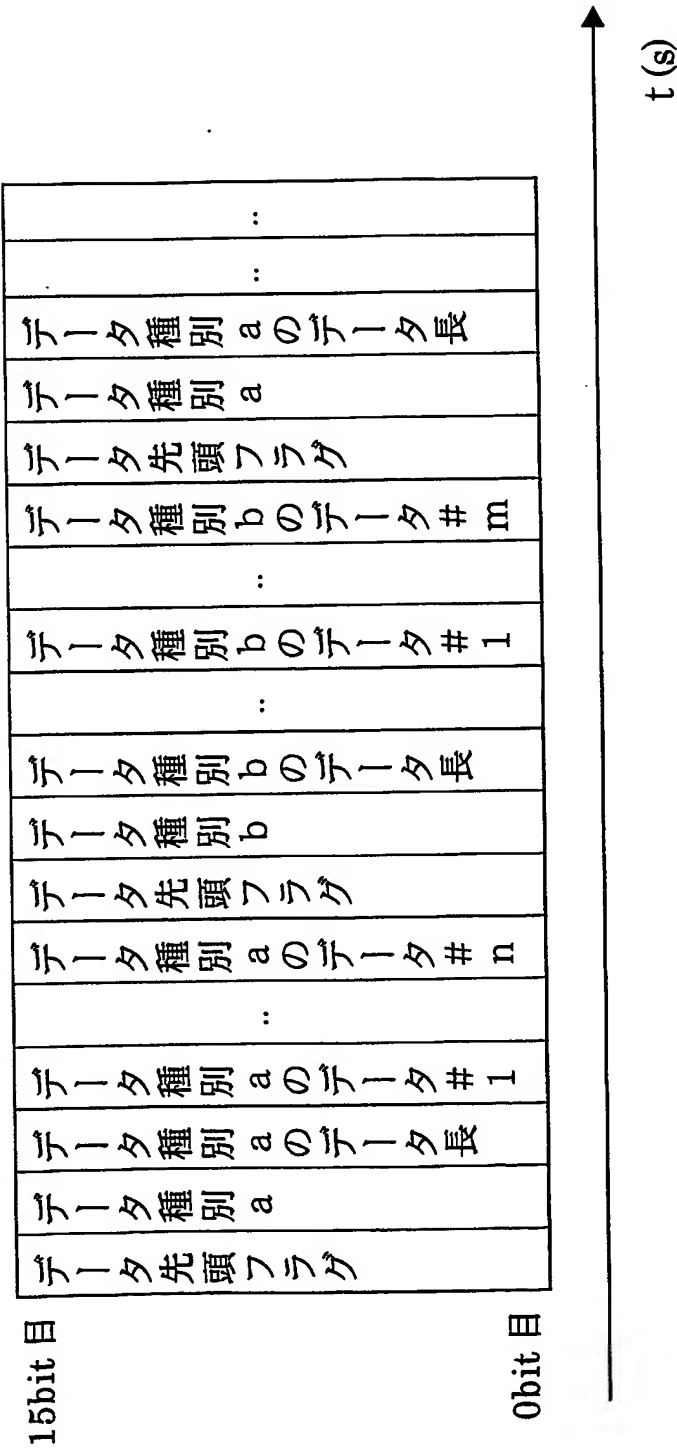 15bit 目
0bit 目
データ先頭フラグ
データ種別a
データ種別aのデータ長
データ種別aのデータ#1
..
データ種別aのデータ#n
データ先頭フラグ
データ種別b
データ種別bのデータ長
..
データ種別bのデータ#1
..
データ種別bのデータ#m
データ先頭フラグ
データ種別a
データ種別aのデータ長
..
..
t(s)